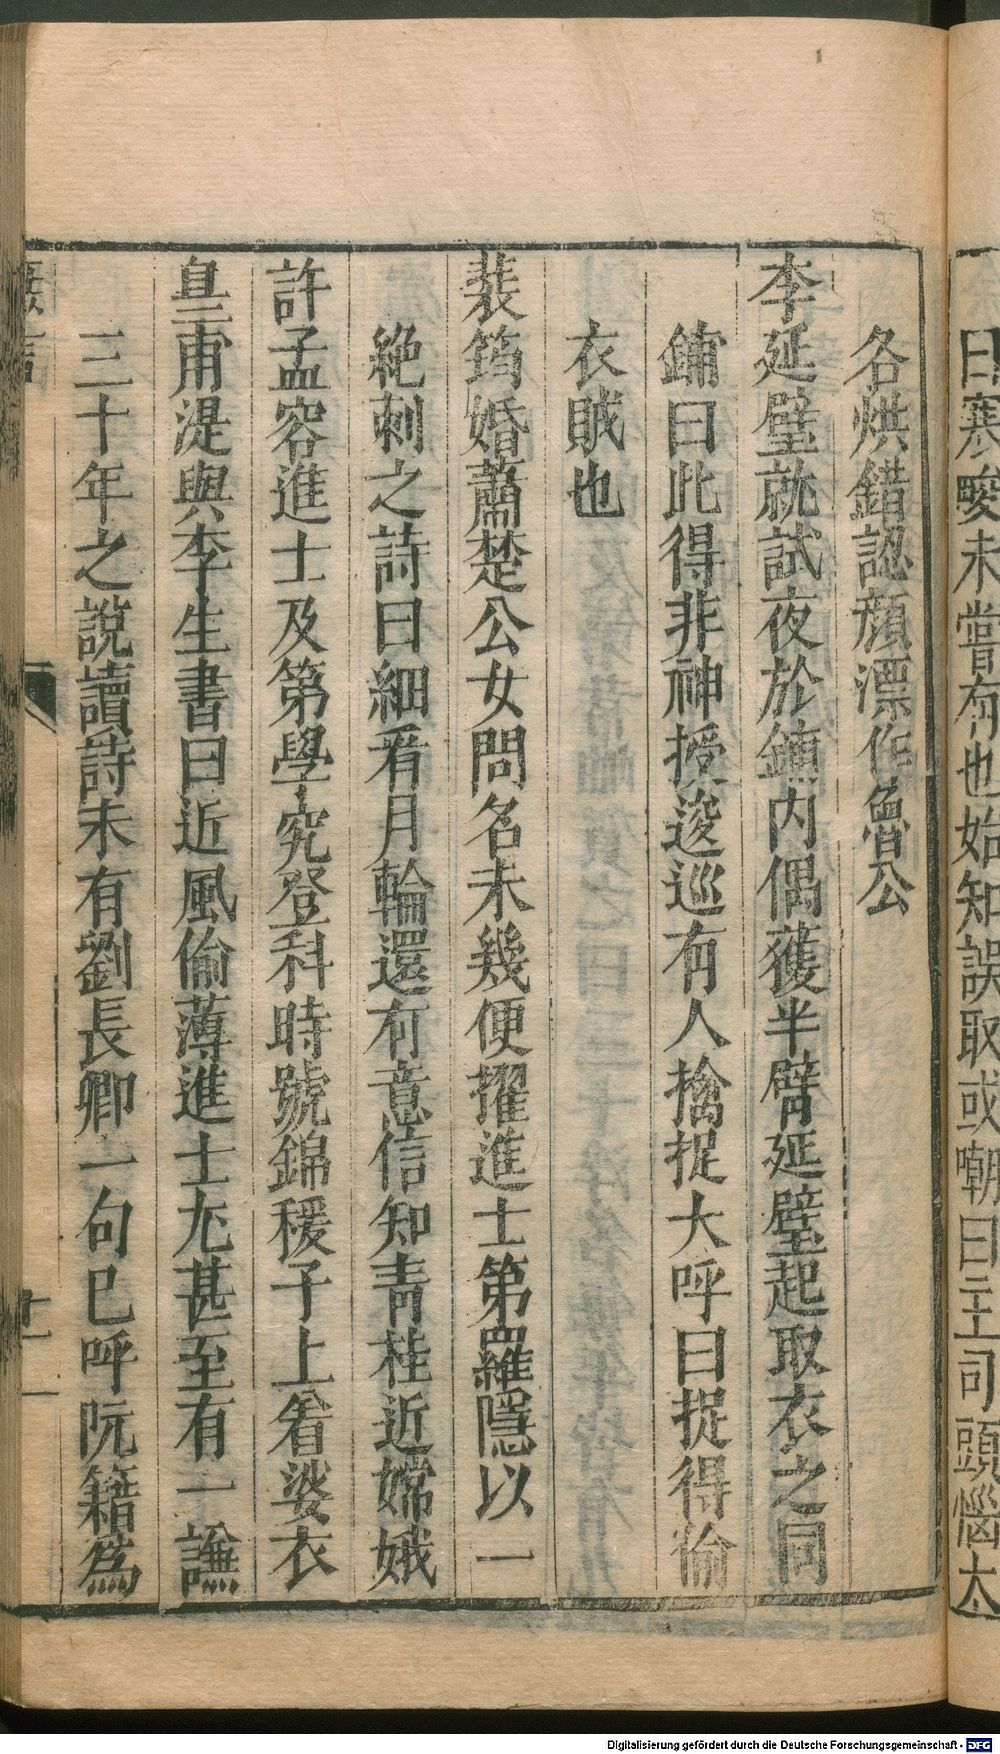 曰寒畯未嘗有也始知誤取或嘲曰主司頭惱太
各烘錯認顏漂作魯公
李延璧就試夜於鋪内偶獲半臂延璧起取衣之同
鋪曰此得非神授逡巡有人擒捉大呼曰捉得偷
衣賊也
裴筠婚蕭楚公女問名未幾便擢進士第羅隱以一
絶刺之詩曰細看月輪還有意信知青桂近嫦娥
許孟容進士及第學究登科時號錦襖子上着娑衣
皇甫湜與李生書曰近風偷薄進士尢甚至有一謙
三十年之說讀詩未有劉長卿一句巳呼阮籍爲
十一
Digitalisierung gefördert durch die Deutsche Forschungsgemeinschaft - DFG